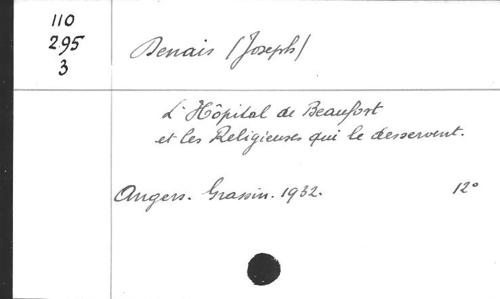 110
295
3
Denais (Joseph)
L'Hôpital de Beaufort
et les Religieuses qui le desservent.
Angers. Grassin. 1932. 12°